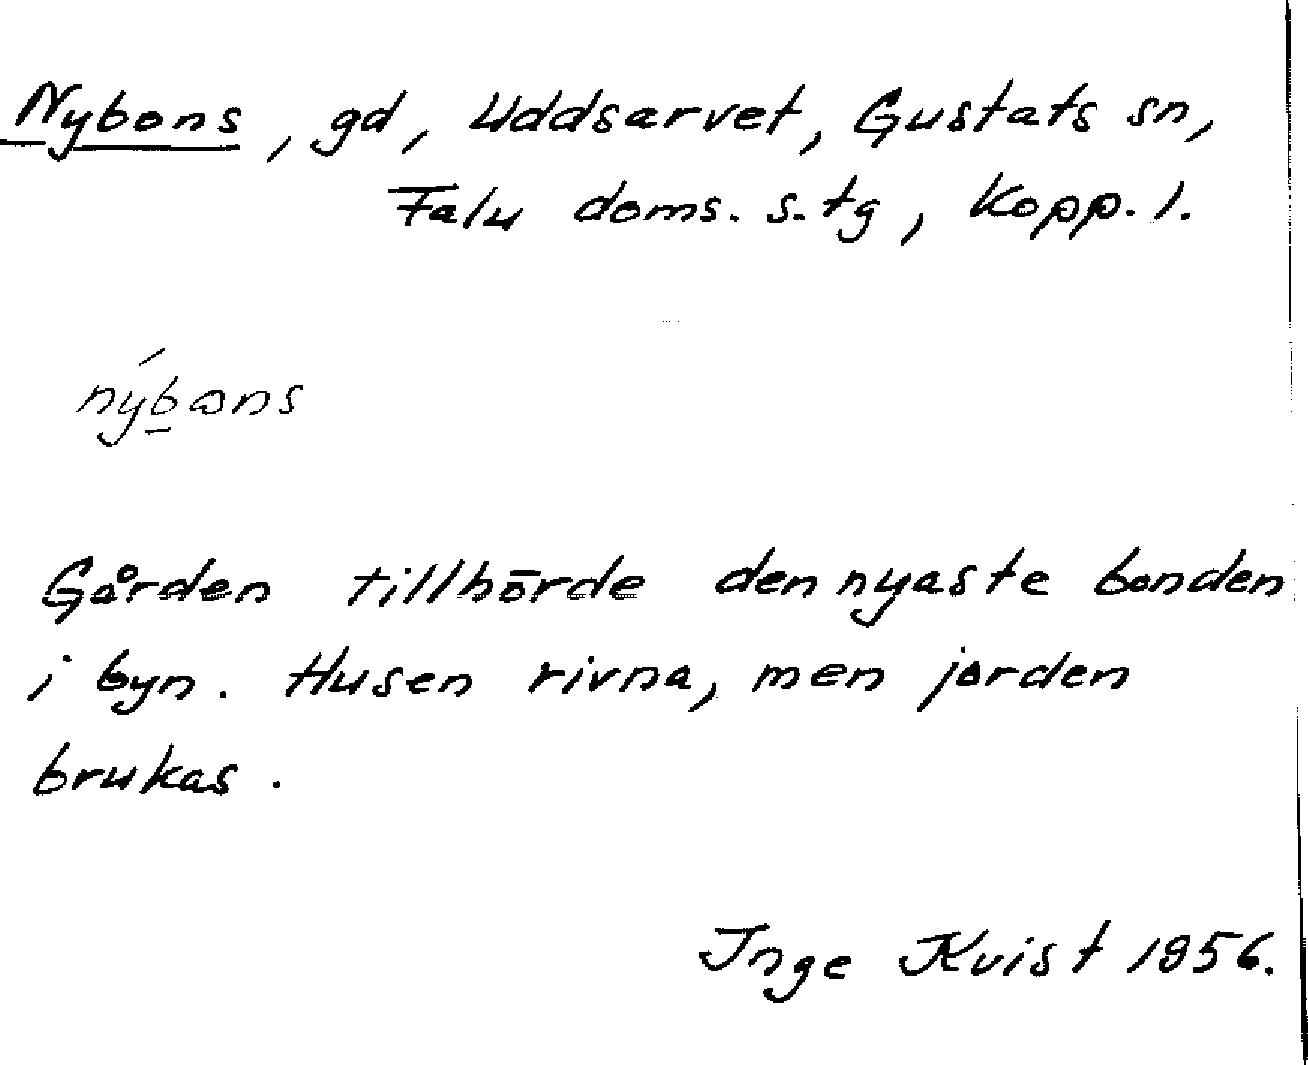 Nybons, gd, Uddsarvet, Gustafs sn,
Falu doms. s. tg, Kopp. l.
nýbons
Gården tillhörde den nyaste bonden
i byn. Husen rivna, men jorden
brukas.
Inge Kvist 1956.